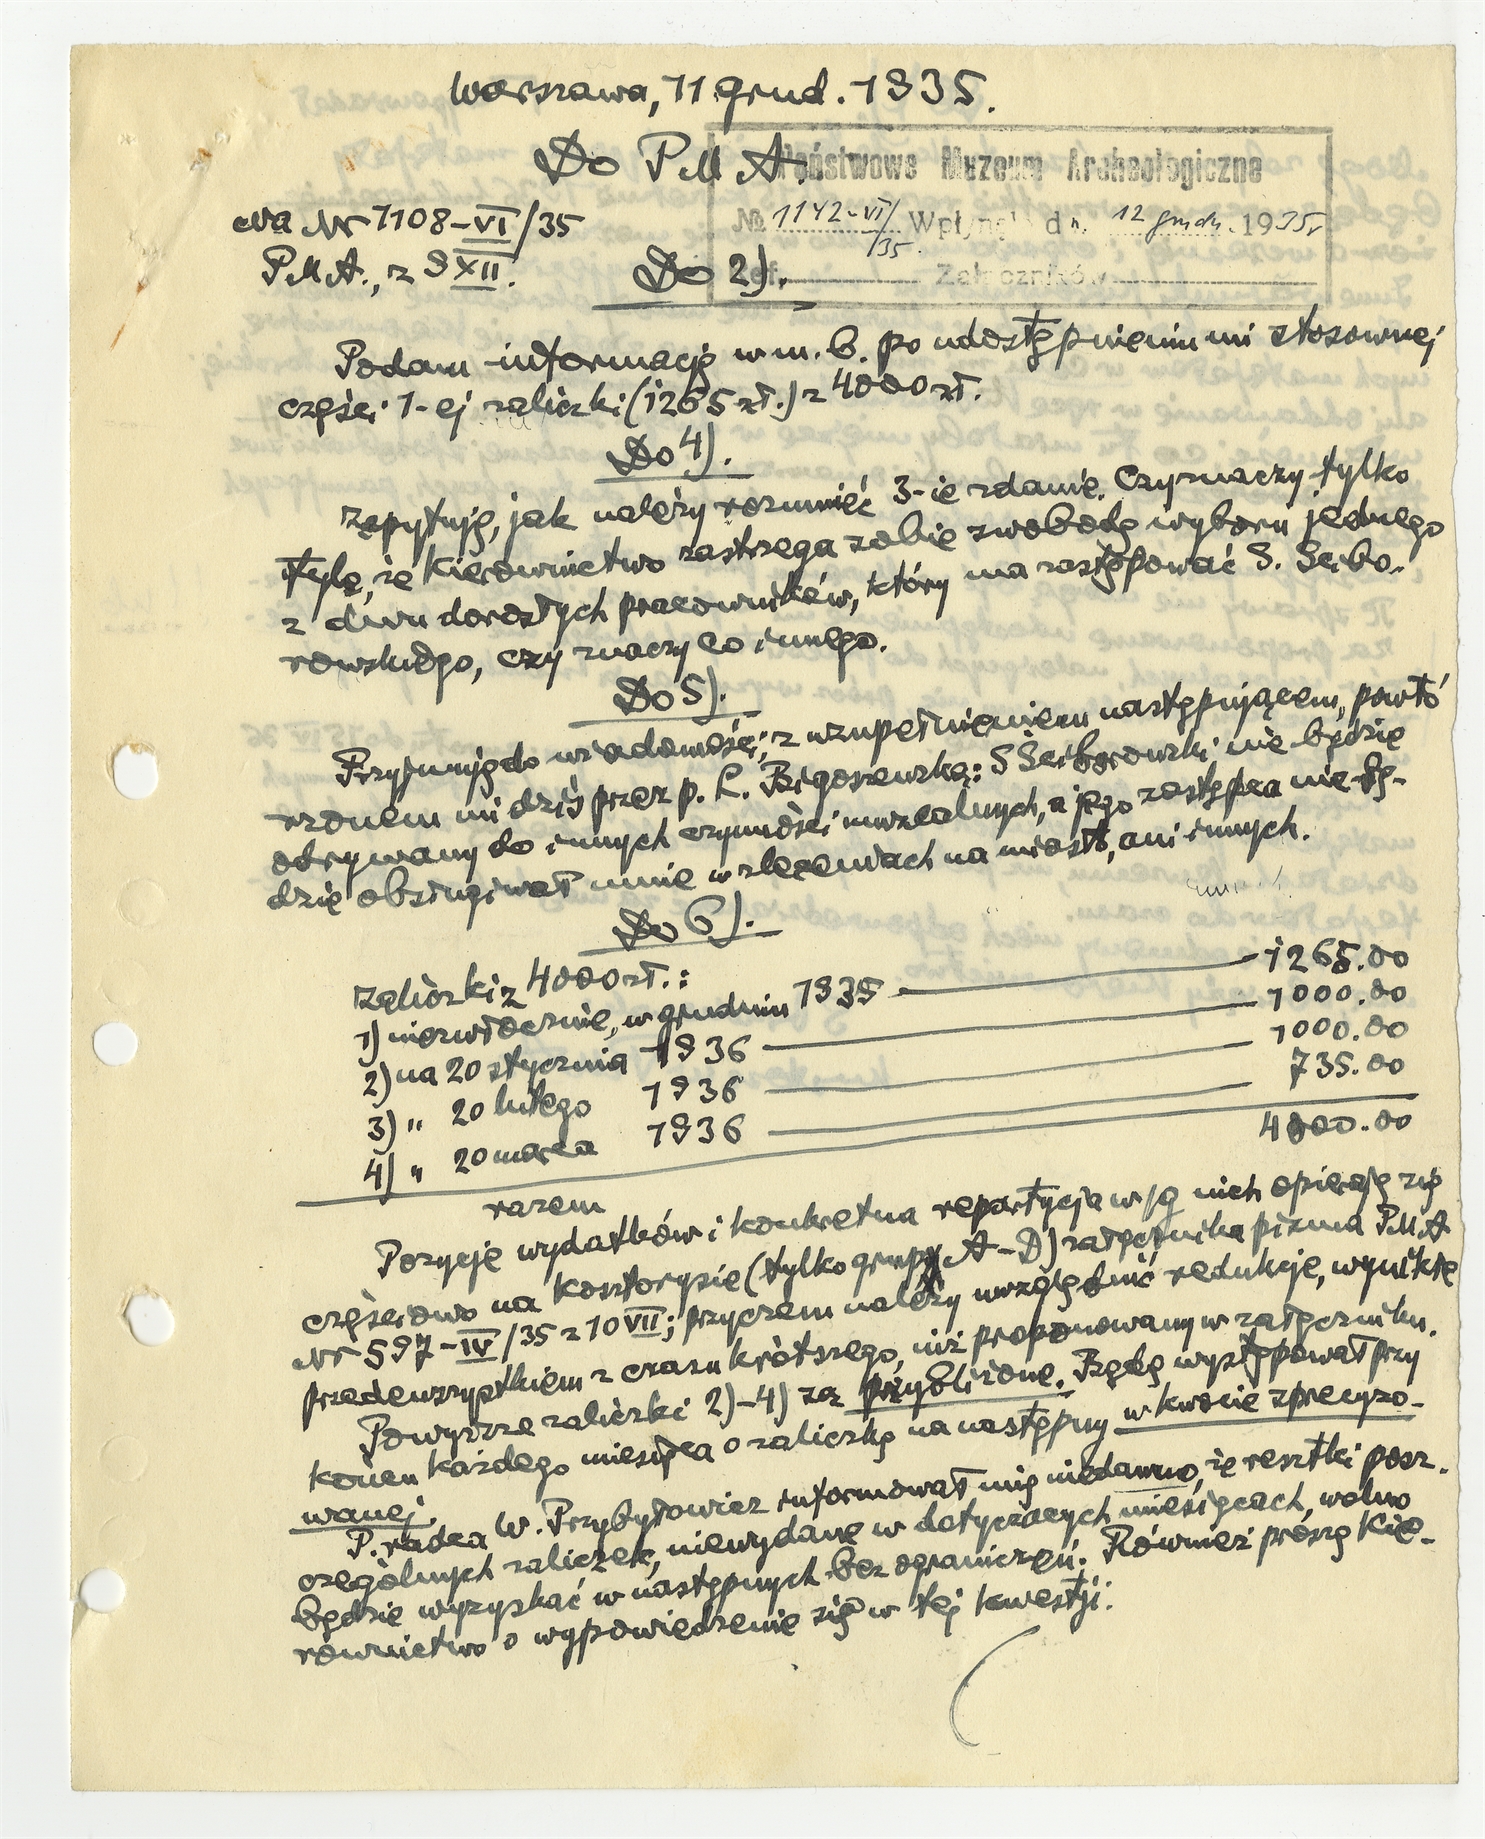 Warszawa, 11 grud. 1935.
Do P M A.
Państwowe Muzeum Archeologiczne
№ 1142-VI/35 Wpłynęło d n. 12 grudn. 1935 r.
Załączników
Na Nr 1108-VI/35
P M A., z 9 XII.
Do 2).
Podam informację w m. b. po udostępnieniu mi stosownej
części 1-ej zaliczki (1265 zł.) z 4000 zł.
Do 4).
Zapytuję, jak należy rozumieć 3-ie zdanie. Czy znaczy tylko
tyle, że Kierownictwo zastrzega sobie swobodę wyboru jednego
z dwu dorosłych pracowników, który ma zastępować S. Ścibo-
rowskiego, czy znaczy co innego.
Do 5).
Przyjmuję do wiadomości, z uzupełnieniem następującem, powtó
rzonem mi dziś przez p. L. Bigoszewską: S Ściborowski nie będzie
odrywany do innych czynności muzealnych, a jego zastępca nie bę-
dzie obsługiwał mnie w zleceniach na miasto, ani innych.
Do 6).
Zaliczki z 4000 zł.:
1) niezwłocznie, w grudniu 1935 1265.00
2) na 20 stycznia 1936 1000.00
3) " 20 lutego 1936 1000.00
4) " 20 marca 1936 735.00
razem 4000.00
Pozycje wydatków i konkretna repartycja w/g nich opierają się
częściowo na kosztorysie (tylko grupy A-D) załącznika pisma P M A
Nr 597-IV/35 z 10 VII; przyczem należy uwzględnić redukcje, wynikłe
przedewszystkiem z czasu krótszego, niż proponowany w załączniku.
Powyższe zaliczki 2)-4) są przybliżone. Będę występował przy
końcu każdego miesiąca o zaliczkę na następny w kwocie sprecyzo-
wanej.
P. radca W. Przybyłowicz informował mię niedawno, że resztki posz-
czególnych zaliczek, niewydane w dotyczących miesiącach, wolno
będzie wyzyskać w następnych bez ograniczeń. Również proszę Kie-
rownictwo o wypowiedzenie się w tej kwestji.